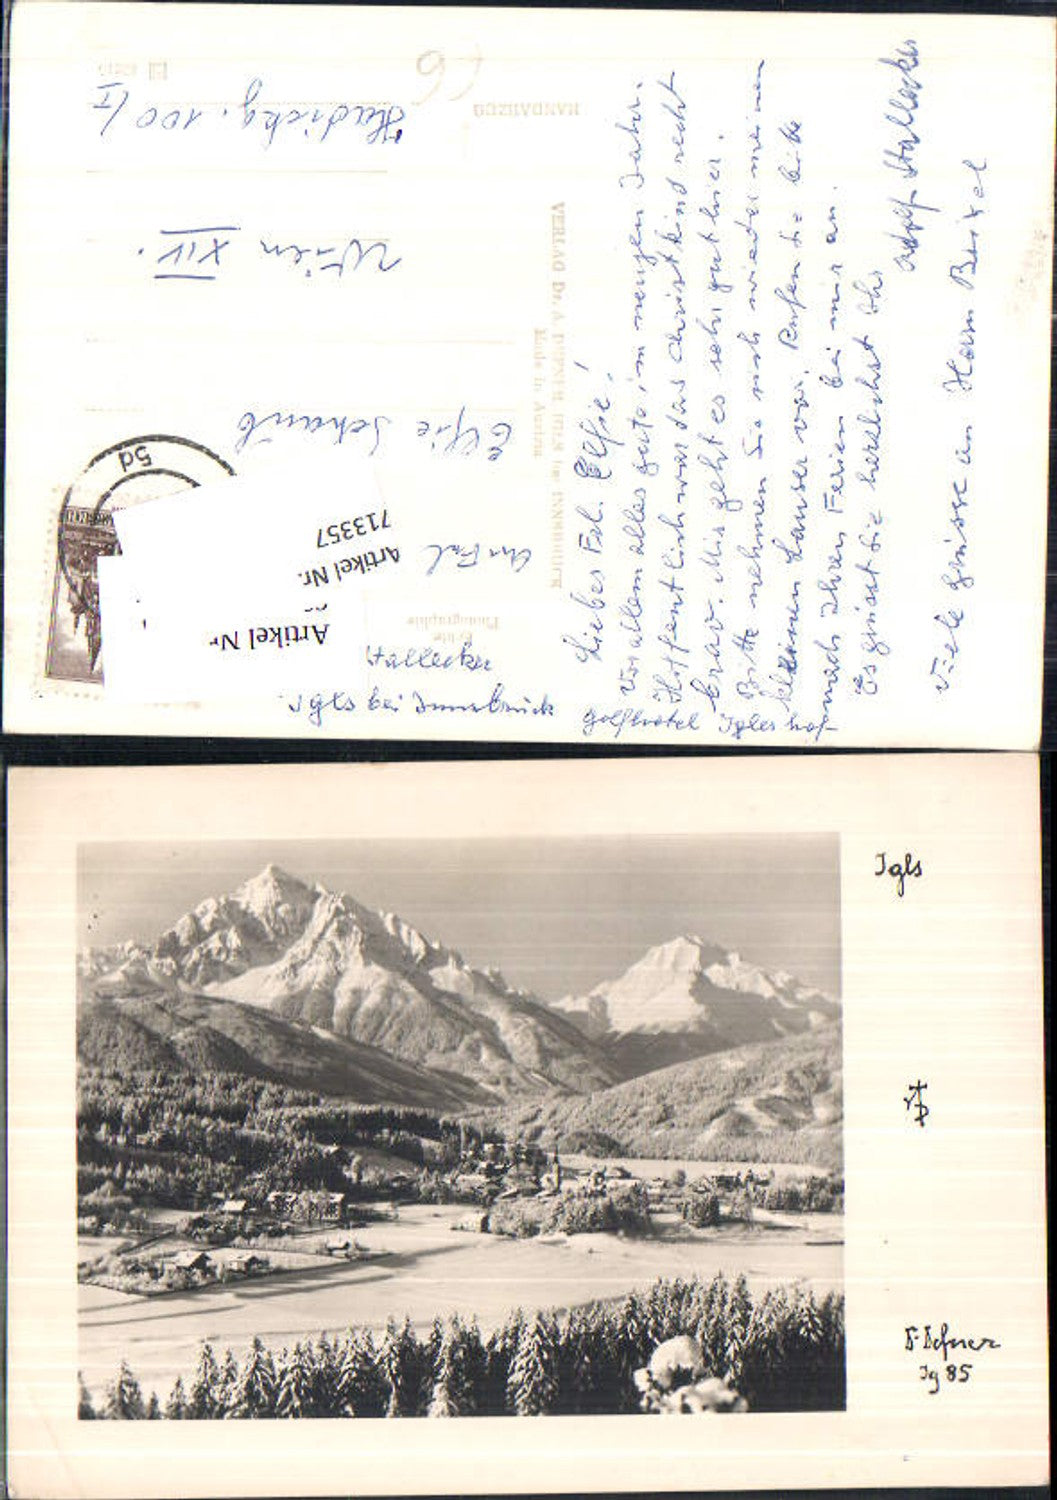 Liebes Frl. Elfie!
Vor allem alles gute im neuen Jahr.
Hoffentlich war das Christkind recht
brav. Mir geht es sehr gut hier.
Bitte nehmen Sie sich wieder meinen
kleinen Lauser vor. Rufen Sie bitte
nach Ihren Ferien bei mir an.
Es grüsst Sie herzlichst Ihr
Adolf
Viele Grüsse an Herrn
Golfhotel Iglerhof
Igls bei Innsbruck
An Frl
Elfie
Wien XIV.
Hadickg. 100/I
5d
HANDABZUG
VERLAG Dr. A. DEFNER IGLS bei INNSBRUCK
Made in Austria
Echte
Photographie
Artikel Nr.
713357
Artikel Nr
Igls
Defner
Ig 85